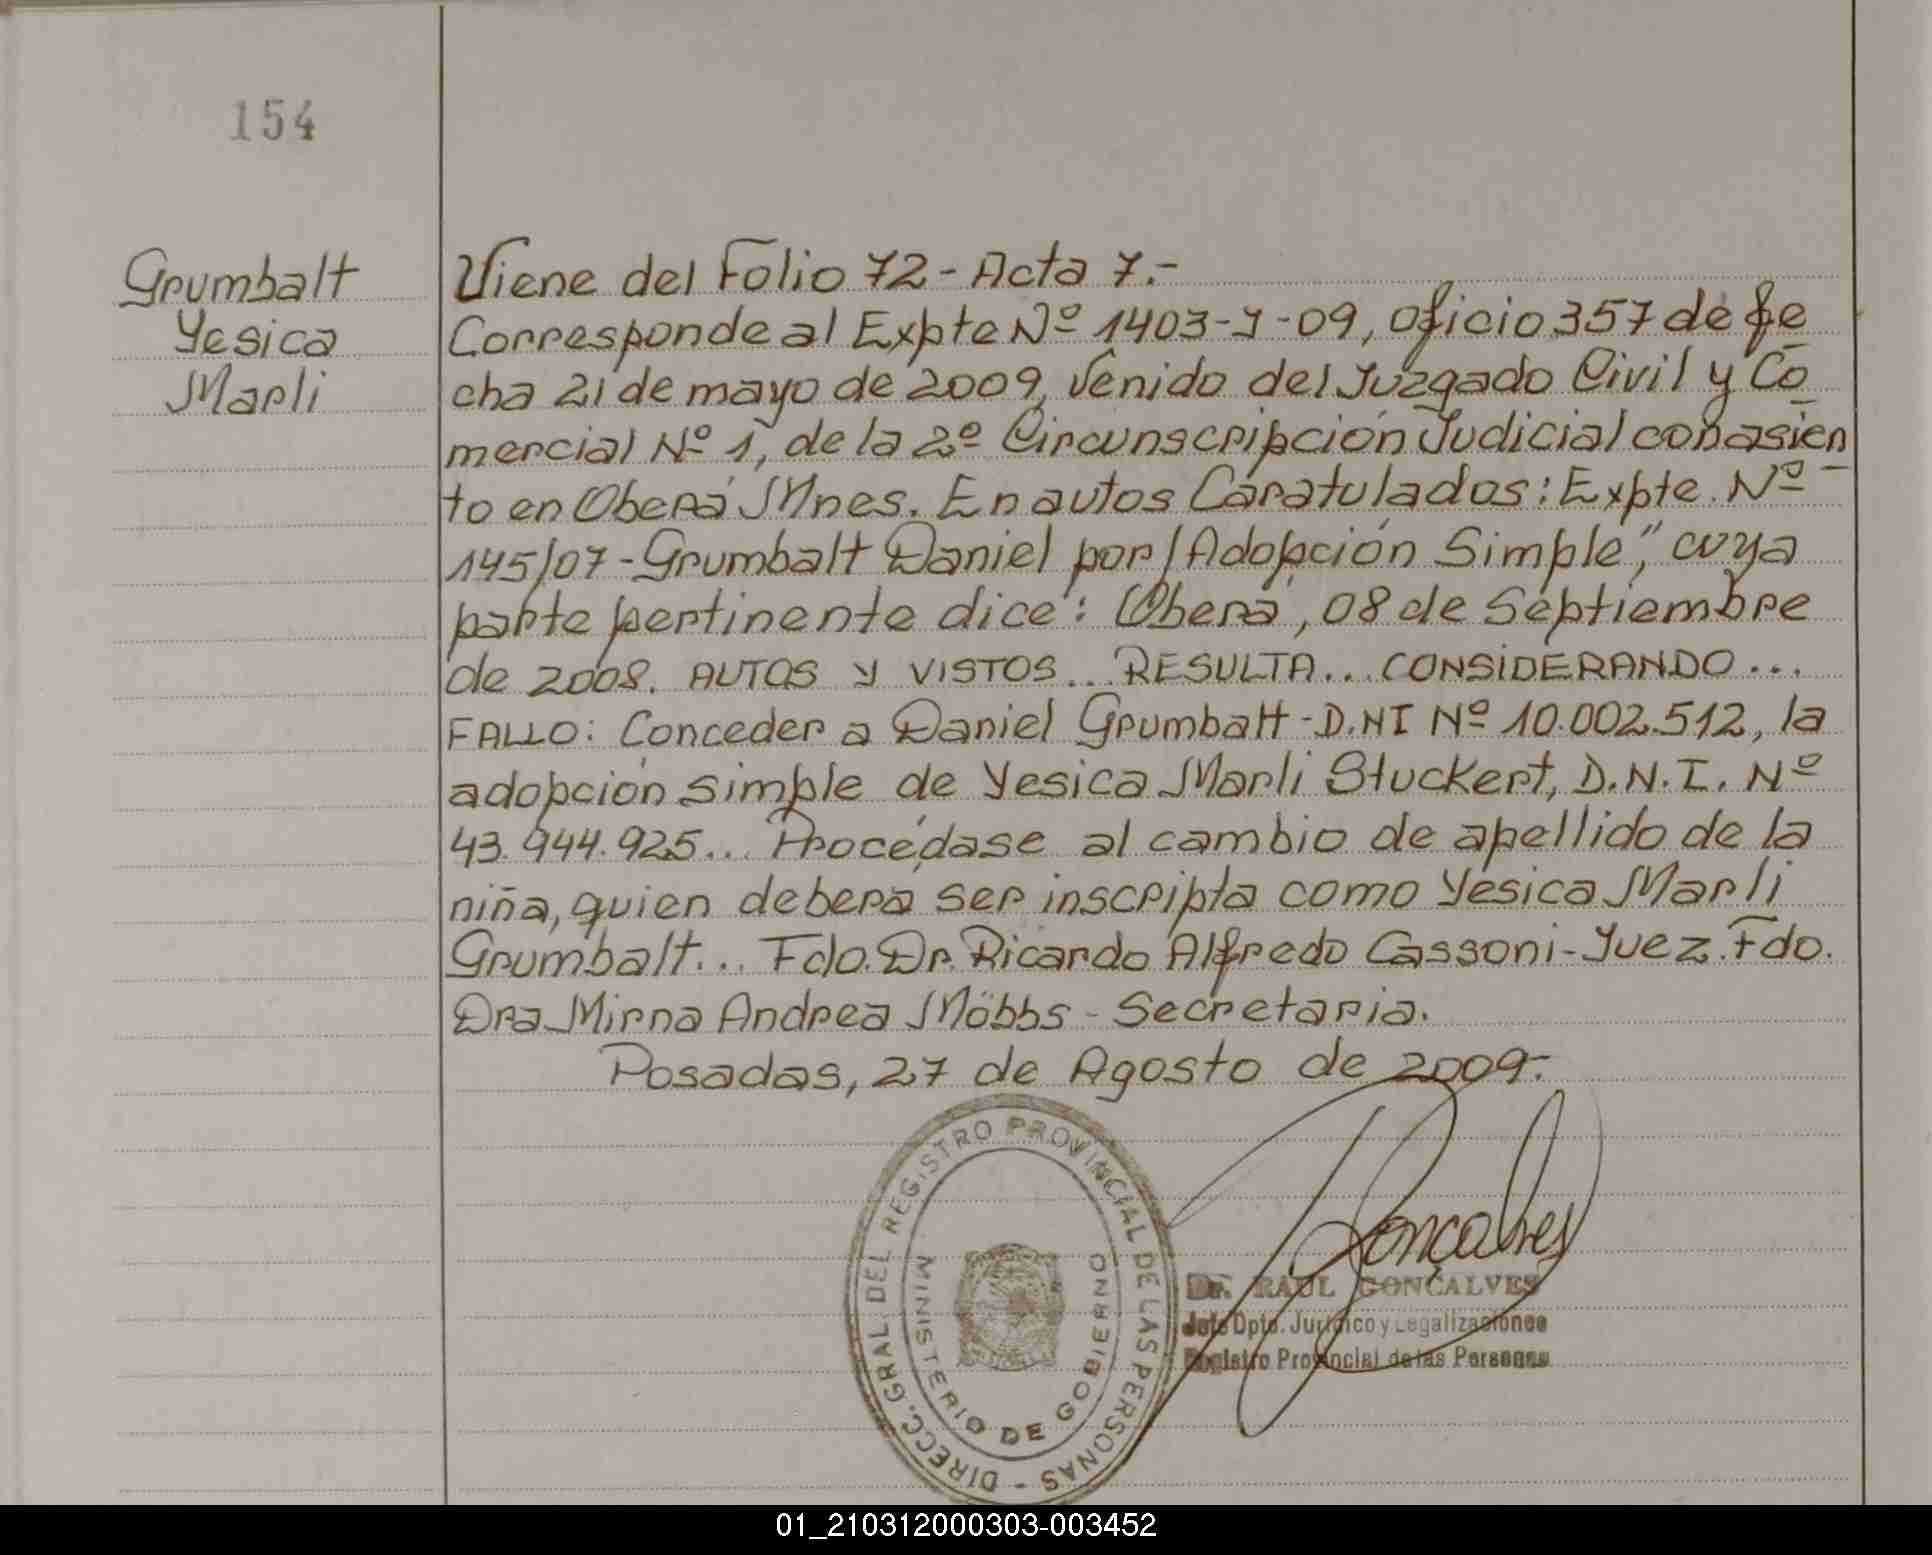 154
Grumbalt
Yesica
Marli
Viene del Folio 72 - Acta 7.-
Corresponde al Expte Nº 1403-Y-09, oficio 357 de fe
cha 21 de mayo de 2009, venido del Juzgado Civil y Co
mercial Nº 1, de la 2º Circunscripción Judicial con asien
to en Oberá Mnes. En autos Caratulados: Expte. Nº
145/07 - Grumbalt Daniel por/Adopción Simple", cuya
parte pertinente dice: Oberá, 08 de Septiembre
de 2008. AUTOS Y VISTOS... RESULTA... CONSIDERANDO...
FALLO: Conceder a Daniel Grumbalt - D.NI Nº 10.002.512, la
adopción simple de Yesica Marli Stuckert, D.N.I. Nº
43.944.925... Procédase al cambio de apellido de la
niña, quien deberá ser inscripta como Yesica Marli
Grumbalt... Fdo. Dr. Ricardo Alfredo Cassoni - Juez. Fdo.
Dra Mirna Andrea Möbbs - Secretaria.
Posadas, 27 de Agosto de 2009.-
DIRECC. GRAL. DEL REGISTRO PROVINCIAL DE LAS PERSONAS -
MINISTERIO DE GOBIERNO
Goncalves
Dr. RAUL GONCALVES
Jefe Dpto. Jurídico y Legalizaciones
Registro Provincial de las Personas
01_210312000303-003452